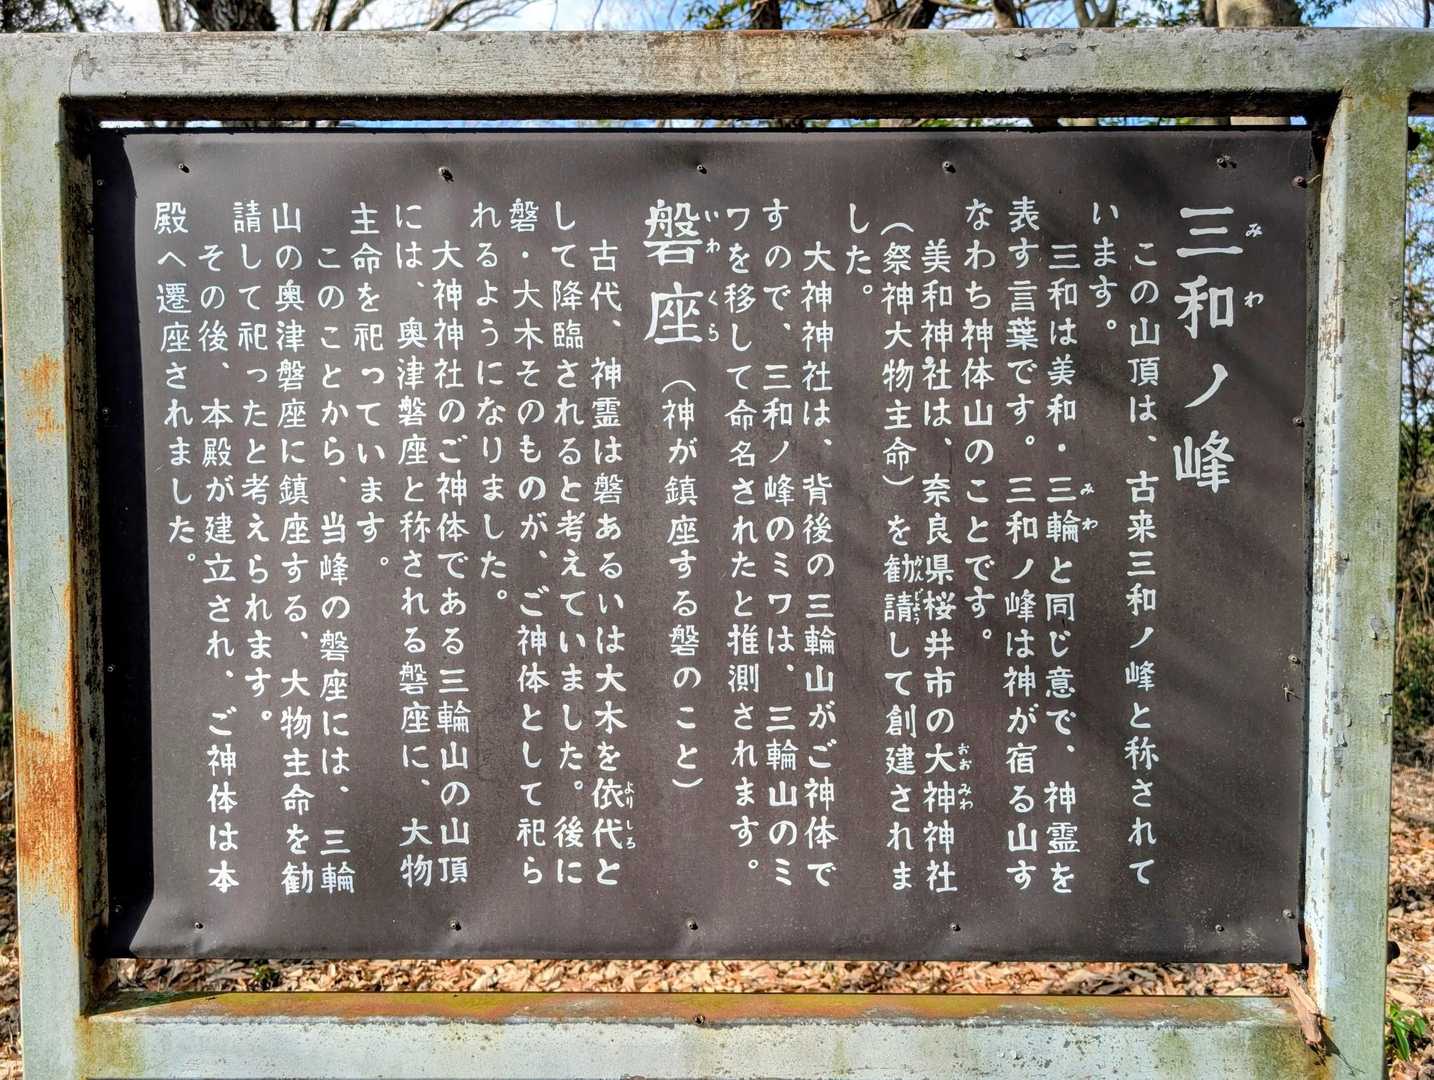 三和ノ峰
みわ
この山頂は、古来三和ノ峰と称されて
います。
三和は美和・三輪と同じ意で、神霊を
みわ
表す言葉です。三和ノ峰は神が宿る山す
なわち神体山のことです。
美和神社は、奈良県桜井市の大神神社
おおみわ
(祭神大物主命)を勧請して創建されま
かんじょう
した。
大神神社は、背後の三輪山がご神体で
すので、三和ノ峰のミワは、三輪山のミ
ワを移して命名されたと推測されます。
磐座(神が鎮座する磐のこと)
いわくら
古代、神霊は磐あるいは大木を依代と
よりしろ
して降臨されると考えていました。後に
磐・大木そのものが、ご神体として祀ら
れるようになりました。
大神神社のご神体である三輪山の山頂
には、奥津磐座と称される磐座に、大物
主命を祀っています。
このことから、当峰の磐座には、三輪
山の奥津磐座に鎮座する、大物主命を勧
請して祀ったと考えられます。
その後、本殿が建立され、ご神体は本
殿へ遷座されました。